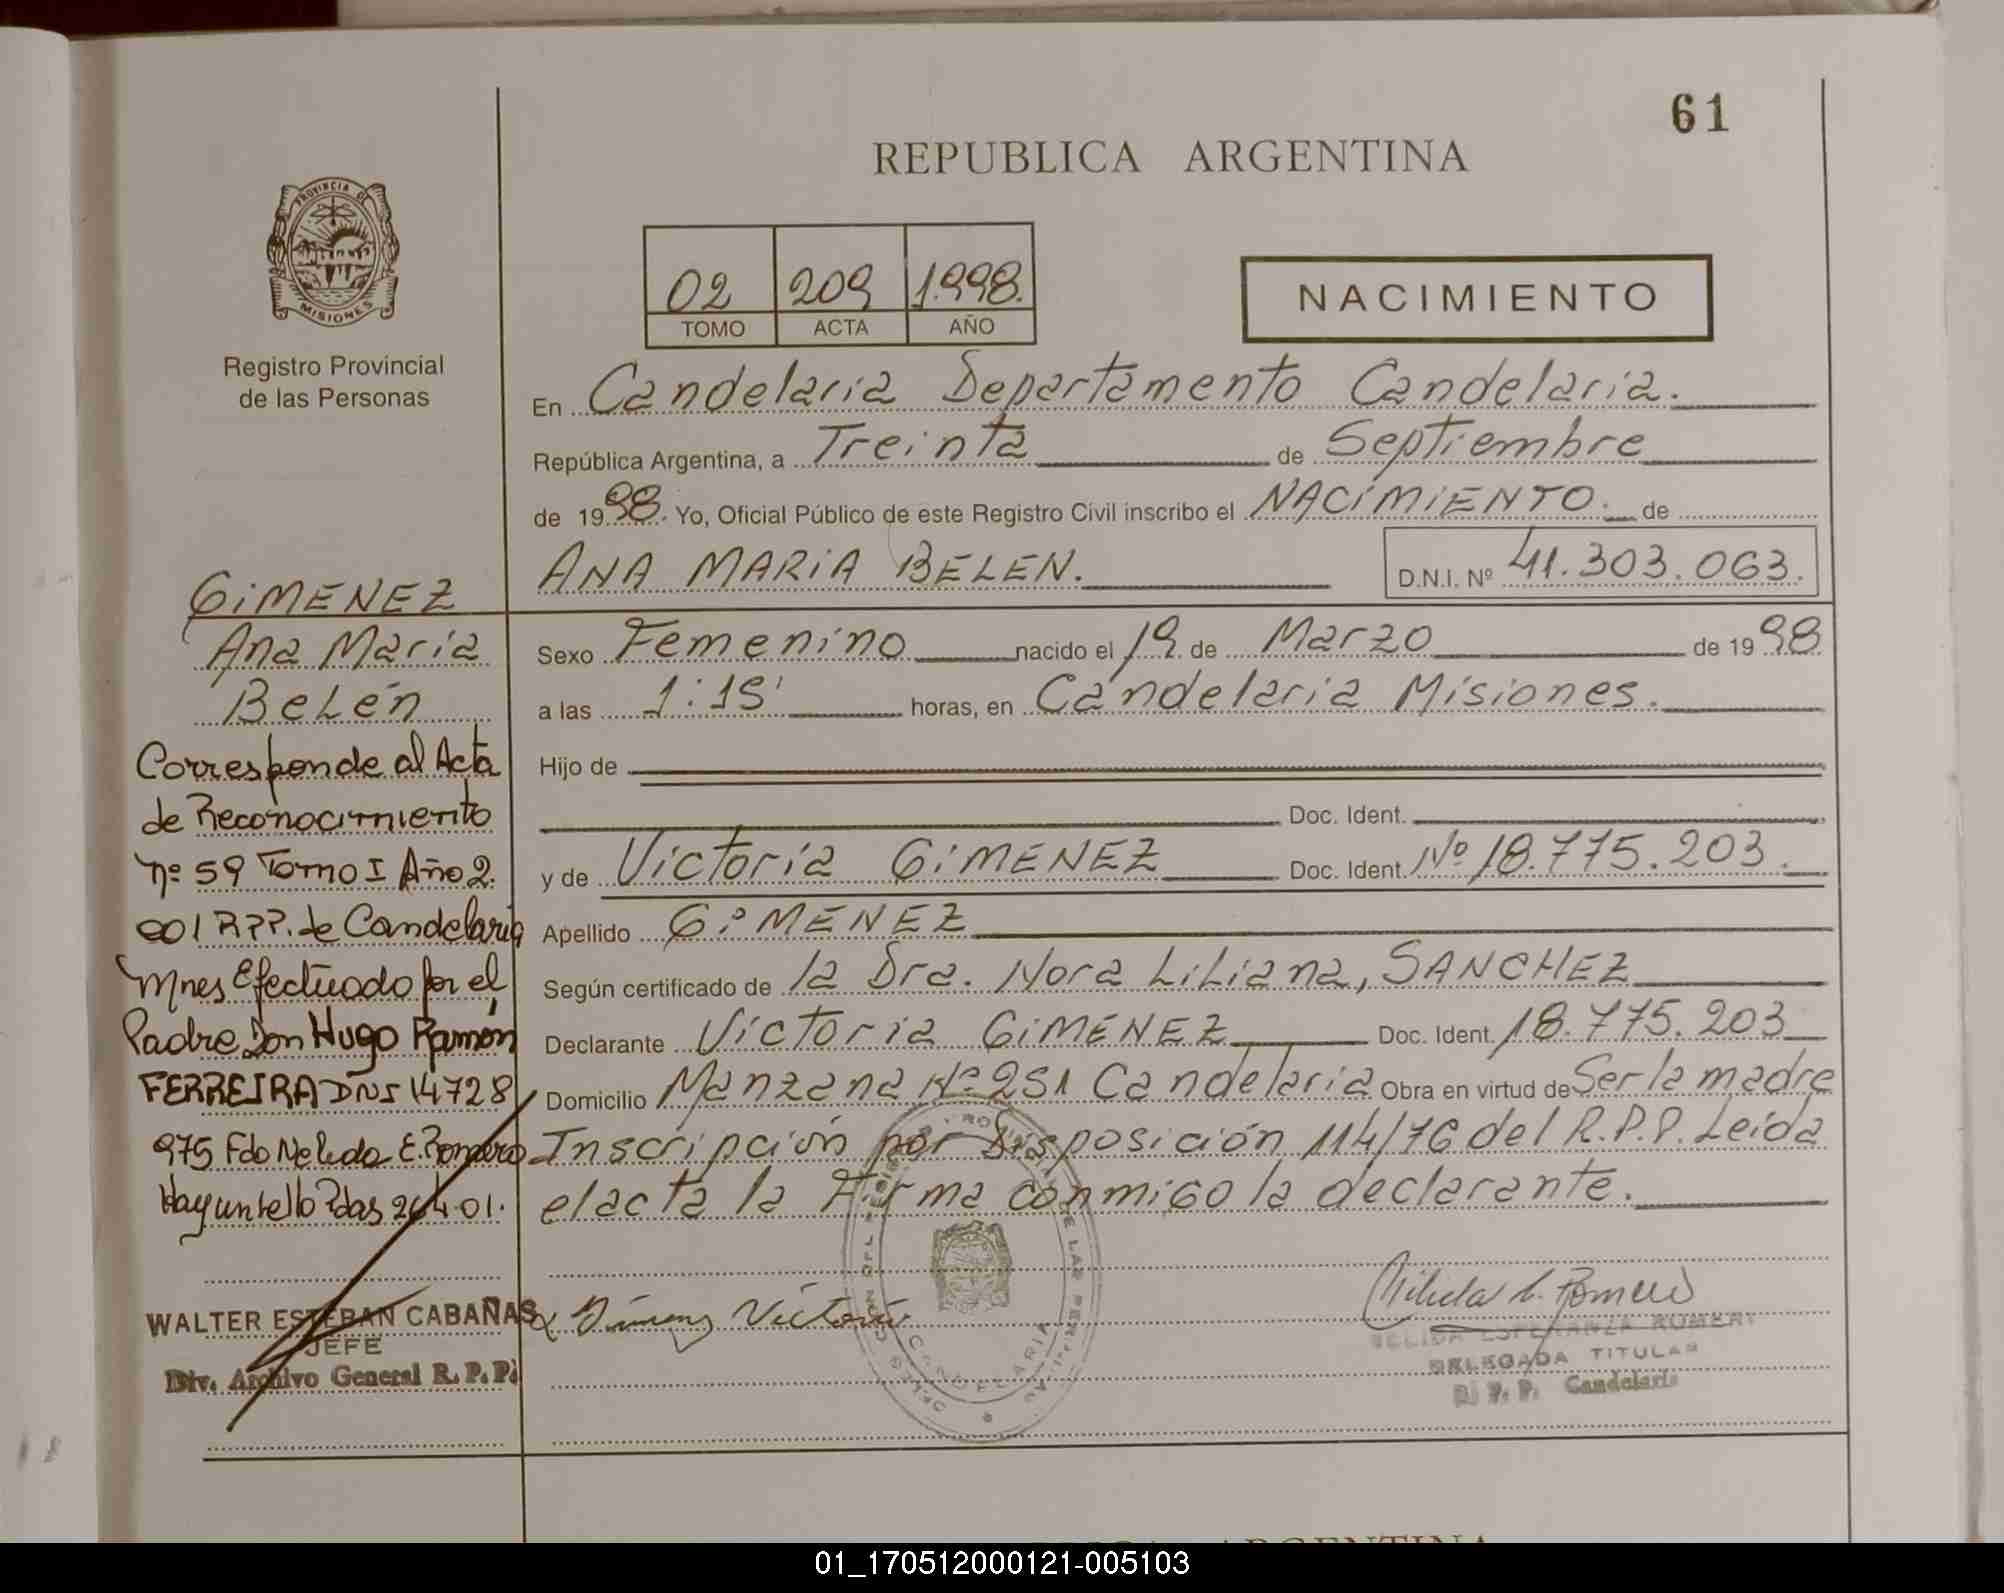 61
REPUBLICA ARGENTINA
PROVINCIA DE MISIONES
Registro Provincial
de las Personas
02 209 1.998.
TOMO ACTA AÑO
NACIMIENTO
En Candelaria Departamento Candelaria.
República Argentina, a Treinta de Septiembre
de 1998. Yo, Oficial Público de este Registro Civil inscribo el NACIMIENTO. de
ANA MARIA BELEN. D.N.I. Nº 41.303.063.
GIMENEZ
Ana María
Belén
Corresponde al Acta
de Reconocimiento
nº 59 Tomo I Año 2.
001 R.P.P. de Candelaria
Mnes Efectuado por el
Padre Don Hugo Ramón
FERREIRA DNI 14728
975 Fdo Nelida E. Romero
Hay un sello Pdas 26 4 01.
WALTER ESTEBAN CABAÑAS
JEFE
Div. Archivo General R. P. P.
Sexo Femenino nacido el 19 de Marzo de 1998
a las 1:15' horas, en Candelaria Misiones.
Hijo de
Doc. Ident.
y de Victoria GIMENEZ Doc. Ident. Nº 18.775.203.
Apellido GIMENEZ
Según certificado de la Dra. Nora Liliana, SANCHEZ
Declarante Victoria GIMENEZ Doc. Ident. 18.775.203
Domicilio Manzana Nº 251 Candelaria Obra en virtud de Ser la madre
Inscripción por Disposición 114/76 del R.P.P. Leída
el acta la Firma conmigo la declarante.
Victoria
NELIDA ESPERANZA ROMERO
DELEGADA TITULAR
R. P. P. Candelaria
CANDELARIA
REPUBLICA ARGENTINA
01_170512000121-005103